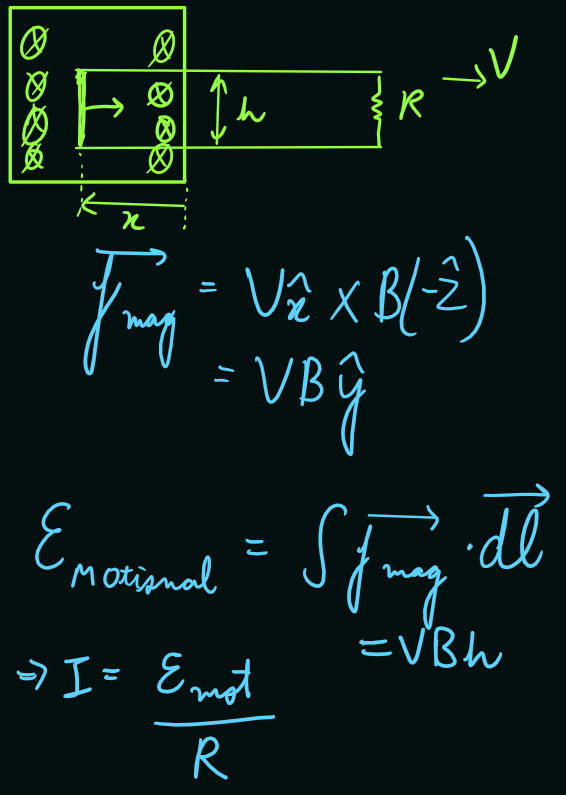 → V
h
R
x
\vec{f}_{mag} = V\hat{x} × B(-\hat{z})
= VB\hat{y}
ℰ_{Motional} = ∫ \vec{f}_{mag} · \vec{dl}
= VBh
⇒ I = ℰ_{mot} / R